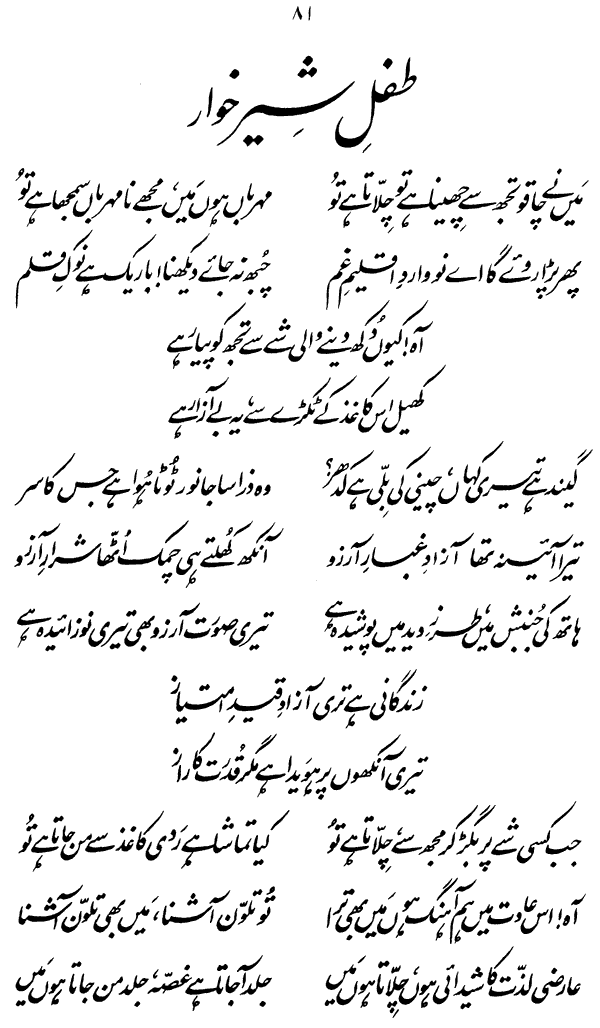 ۸۱
طفلِ شیر خوار
مَیں نے چاقو تجھ سے چھینا ہے تو چِلّاتا ہے تُو مہرباں ہوں مَیں، مجھے نا مہرباں سمجھا ہے تُو
پھر پڑا روئے گا اے نو واردِ اقلیمِ غم چُبھ نہ جائے دیکھنا! باریک ہے نوکِ قلم
آہ! کیوں دُکھ دینے والی شے سے تجھ کو پیار ہے
کھیل اس کاغذ کے ٹکڑے سے، یہ بے آزار ہے
گیند ہے تیری کہاں، چینی کی بلّی ہے کدھر؟ وہ ذرا سا جانور ٹُوٹا ہُوا ہے جس کا سر
تیرا آئینہ تھا آزادِ غبارِ آرزو آنکھ کُھلتے ہی چمک اُٹھّا شرارِ آرزو
ہاتھ کی جُنبش میں، طرزِ دید میں پوشیدہ ہے تیری صُورت آرزو بھی تیری نوزائیدہ ہے
زندگانی ہے تری آزادِ قیدِ امتیاز
تیری آنکھوں پر ہویدا ہے مگر قُدرت کا راز
جب کسی شے پر بگڑ کر مجھ سے، چِلّاتا ہے تُو کیا تماشا ہے رَدی کاغذ سے من جاتا ہے تُو
آہ! اس عادت میں ہم آہنگ ہوں مَیں بھی ترا تُو تلوّن آشنا، مَیں بھی تلوّن آشنا
عارضی لذّت کا شیدائی ہوں، چِلّاتا ہوں مَیں جلد آ جاتا ہے غصّہ، جلد من جاتا ہوں مَیں